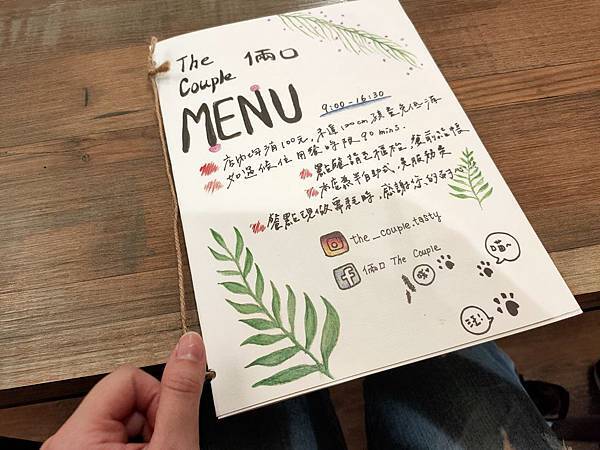 The 倆口
Couple
MENU
9:00-16:30
店內每消100元,未達100cm孩童免低消
如遇候位用餐時限90mins.
點餐請至櫃檯,餐前結帳
本店採半自助式,
餐點現做需耗時,感謝您的耐心
the_couple.tasty
倆口 The Couple
喵~
汪!